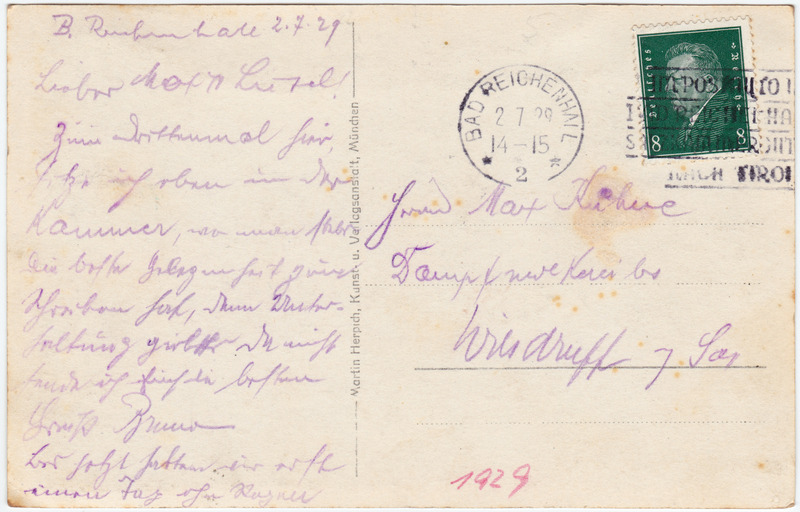 B. Reichenhall 2.7.29
Lieber Max u Liesel!
Zum drittenmal hier,
sitze ich oben in der
Kammer, wo man
die beste Gelegenheit zum
Schreiben hat, denn Unter-
haltung giebts da nicht
sende ich Euch die besten
Grüße Bruno
Bis jetzt hatten wir erst
einen Tag ohne Regen
Martin Herpich, Kunst- u. Verlagsanstalt, München
BAD REICHENHALL
2 7 29
14-15
2
Deutsches Reich
8 8
NACH TIROL
Herrn Max Kühne
Dampfmolkereibes
Wilsdruff / Sa
1929